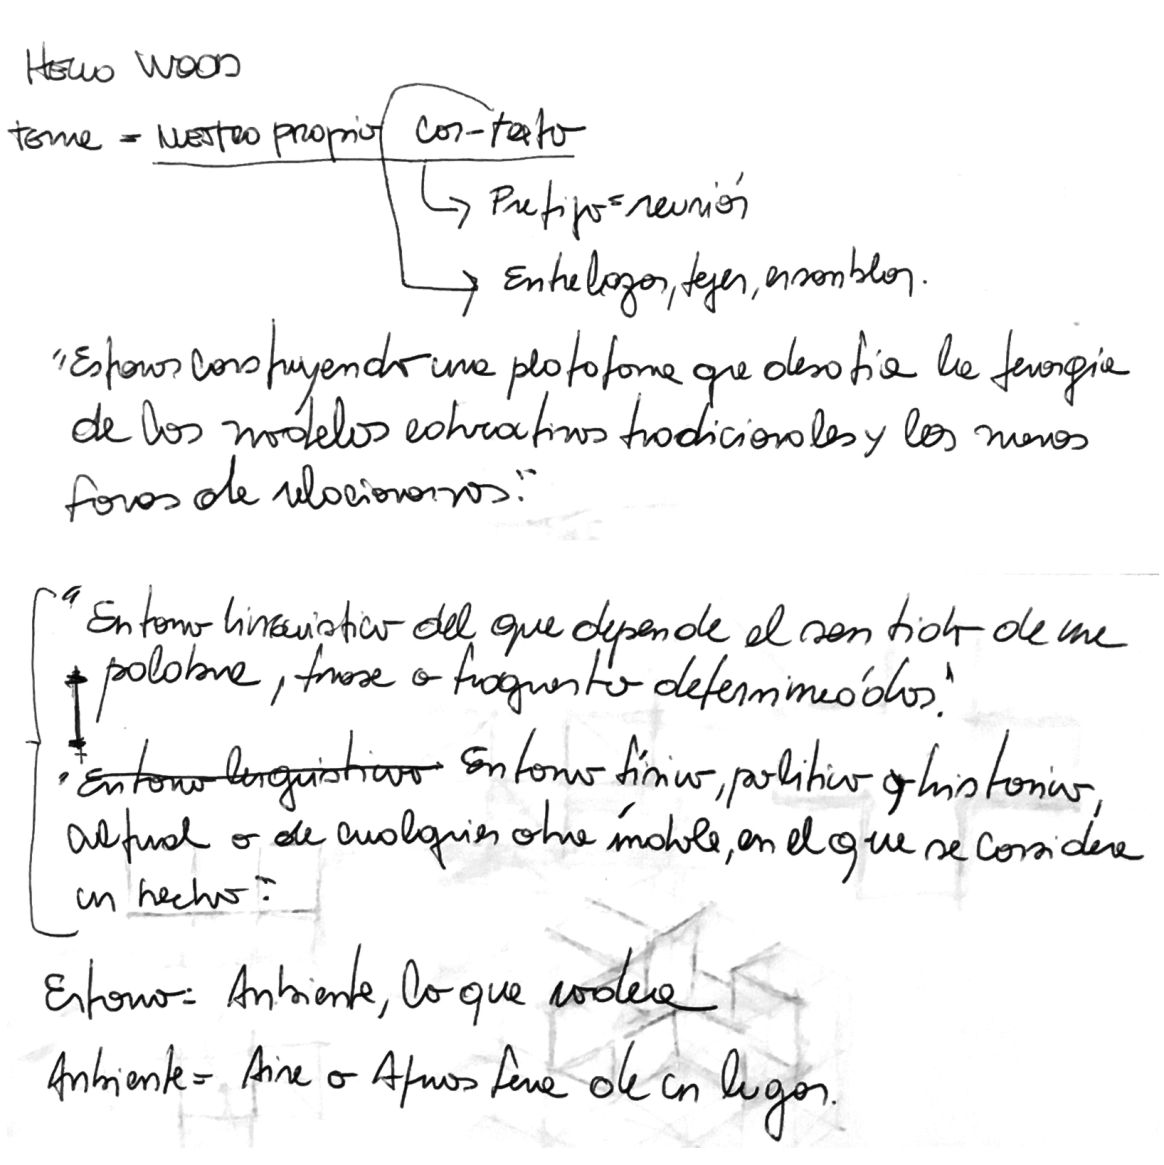 HELLO WOOD
tema = NUESTRO propio con-texto
Prefijo = reunión
Entrelazar, tejer, ensamblar.
"Estamos construyendo una plataforma que desafía la
de los modelos educativos tradicionales y las
formas de relacionarnos."
"Entorno lingüístico del que depende el sentido de una
palabra, frase o fragmento determinados."
"Entorno lingüístico Entorno físico, político o histórico,
cultural o de cualquier otra índole, en el que se considera
un hecho."
Entorno = Ambiente, lo que rodea
Ambiente = Aire o Atmosfera de un lugar.